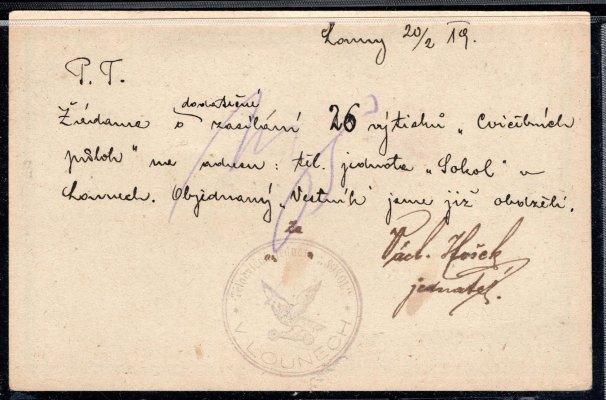 Louny 20/2 19.
P. T.
dodatečné
Žádáme o zasílání 26 výtisků „Cvičebních
příloh" na adresu: těl. jednota „Sokol" v
Lounech. Objednaný „Věstník" jsme již obdrželi.
Za
Václ. Hošek
jednatel.
V LOUNECH